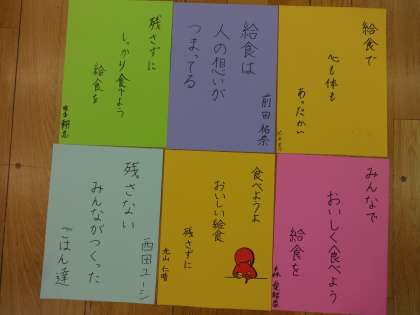 給食で
心も体も
あったかい
給食は
人の想いが
つまってる
前田 祐奈
残さずに
しっかり食べよう
給食を
みんなで
おいしく食べよう
給食を
食べようよ
おいしい給食
残さずに
光山 仁晴
残さない
みんながつくった
ごはん達
西田ユージ